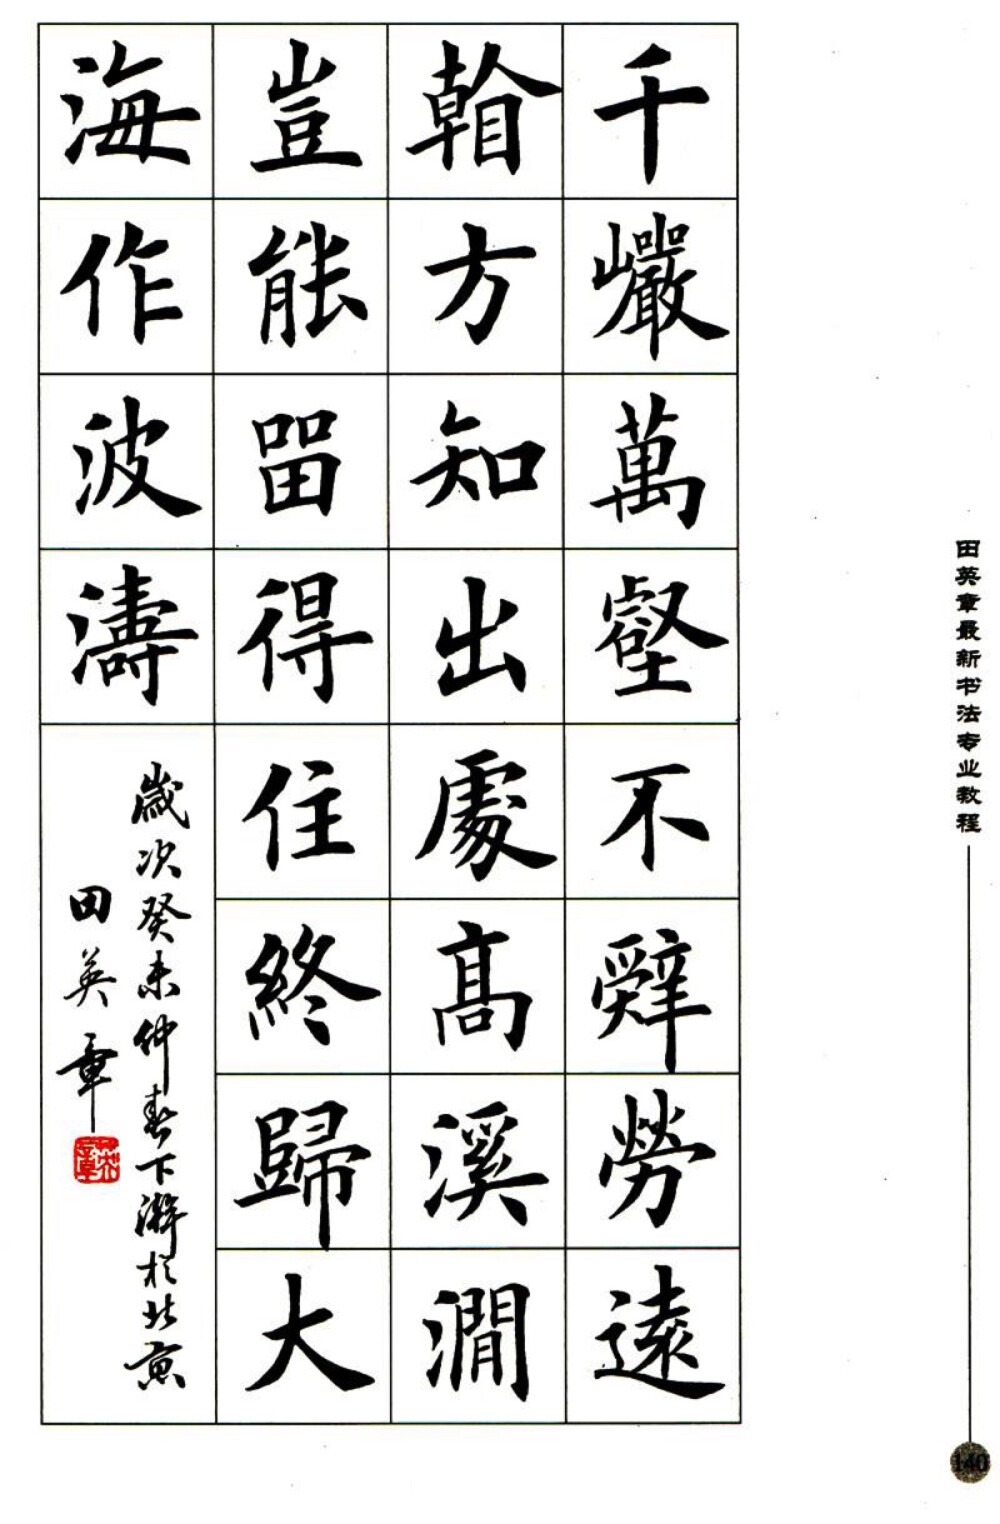 千巗萬壑不辭勞遠
看方知出處高溪澗
豈能留得住終歸大
海作波濤
歲次癸未仲春下澣於北京
田英章
英章
田英章最新书法专业教程
140